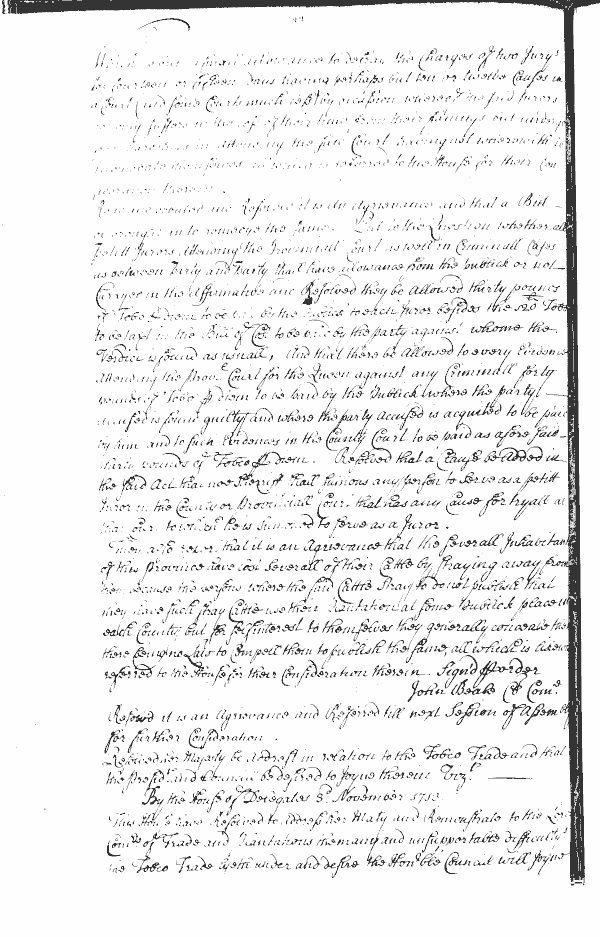 allowance to defray the Charges of two Jurys
for fourteen or fifteen Days having perhaps but ten or twelve Causes in
a Court (and some Courts much less) by occasion whereof the said Jurors
very suffer in the loss of their time from their familys but
in attending the said Court having not wherewith to
themselves all which is referred to the House for their Con
sideration therein.
and Resolved it is an Agrievance and that a Bill
be brought in to remedye the same. Put to the Question whether all
Petitt Jurors Attending the Provinciall Court as well in Criminall Cases
as between Party and Party shall have allowance from the Publick or not
Carryed in the Affirmative and Resolved they be Allowed thirty pounds
of Tobo P Diem to be paid by the Publick to each Juror besides the 120 Tobo
to be taxt in the Bill of Cost to be paid by the party against whome the
Verdict is found as usuall, And that there be Allowed to every Evidence
attending the Prov. Court for the Queen against any Criminall forty
pounds of Tobo P diem to be paid by the Publick where the party
accused is found guilty and where the party accused is acquited to be paid
by him and to such Evidences in the County Court to be paid as afore said
thirty pounds of Tobco P Diem. Resolved that a Clause be Added in
the said Act that noe Sherriff shall sumons any person to serve as a petitt
Juror in the County or Provinciall Court that has any Cause for tryall at
that Court to which he is Sumoned to serve as a Juror.
that it is an Agrievance that the severall Inhabitants
of this Province have lost severall of their Cattle by straying away from
because the persons where the said Cattle Stray to do not publish that
they have such stray Cattle use their Plantation at some Publick place in
each County, but for selfinterest to themselves they generally conceale the
there being no Law to Compell them to publish the same, all which is likewise
referred to the House for their Consideration therein. Signd P order
John Beale Cl Com.
Resolvd it is an Agrievance and Referred till next Session of Assembly
for further Consideration.
Resolved her Majesty be Addrest in relation to the Tobco Trade and that
the Presidt. and Councill be desired to Joyne therein Vizt.
By the House of Delegates 3d. November 1713.
This House have Resolved to Address her Maty and Remonstrate to the Lords
Comrs of Trade and Plantations the many and unsupportable difficultys
the Tobco Trade lyeth under and desire the Honble Councill will Joyne